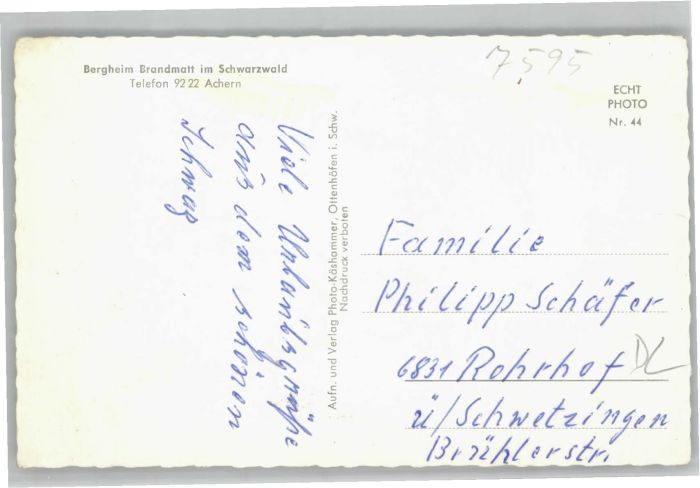 Bergheim Brandmatt im Schwarzwald
Telefon 92 22 Achern
Viele Urlaubsgrüße
aus dem schönen
Schwaz
Aufn. und Verlag Photo-Käshammer, Ottenhöfen i. Schw.
Nachdruck verboten
7595
ECHT
PHOTO
Nr. 44
Familie
Philipp Schäfer
6831 Rohrhof
ü/Schwetzingen
Brühlerstr.